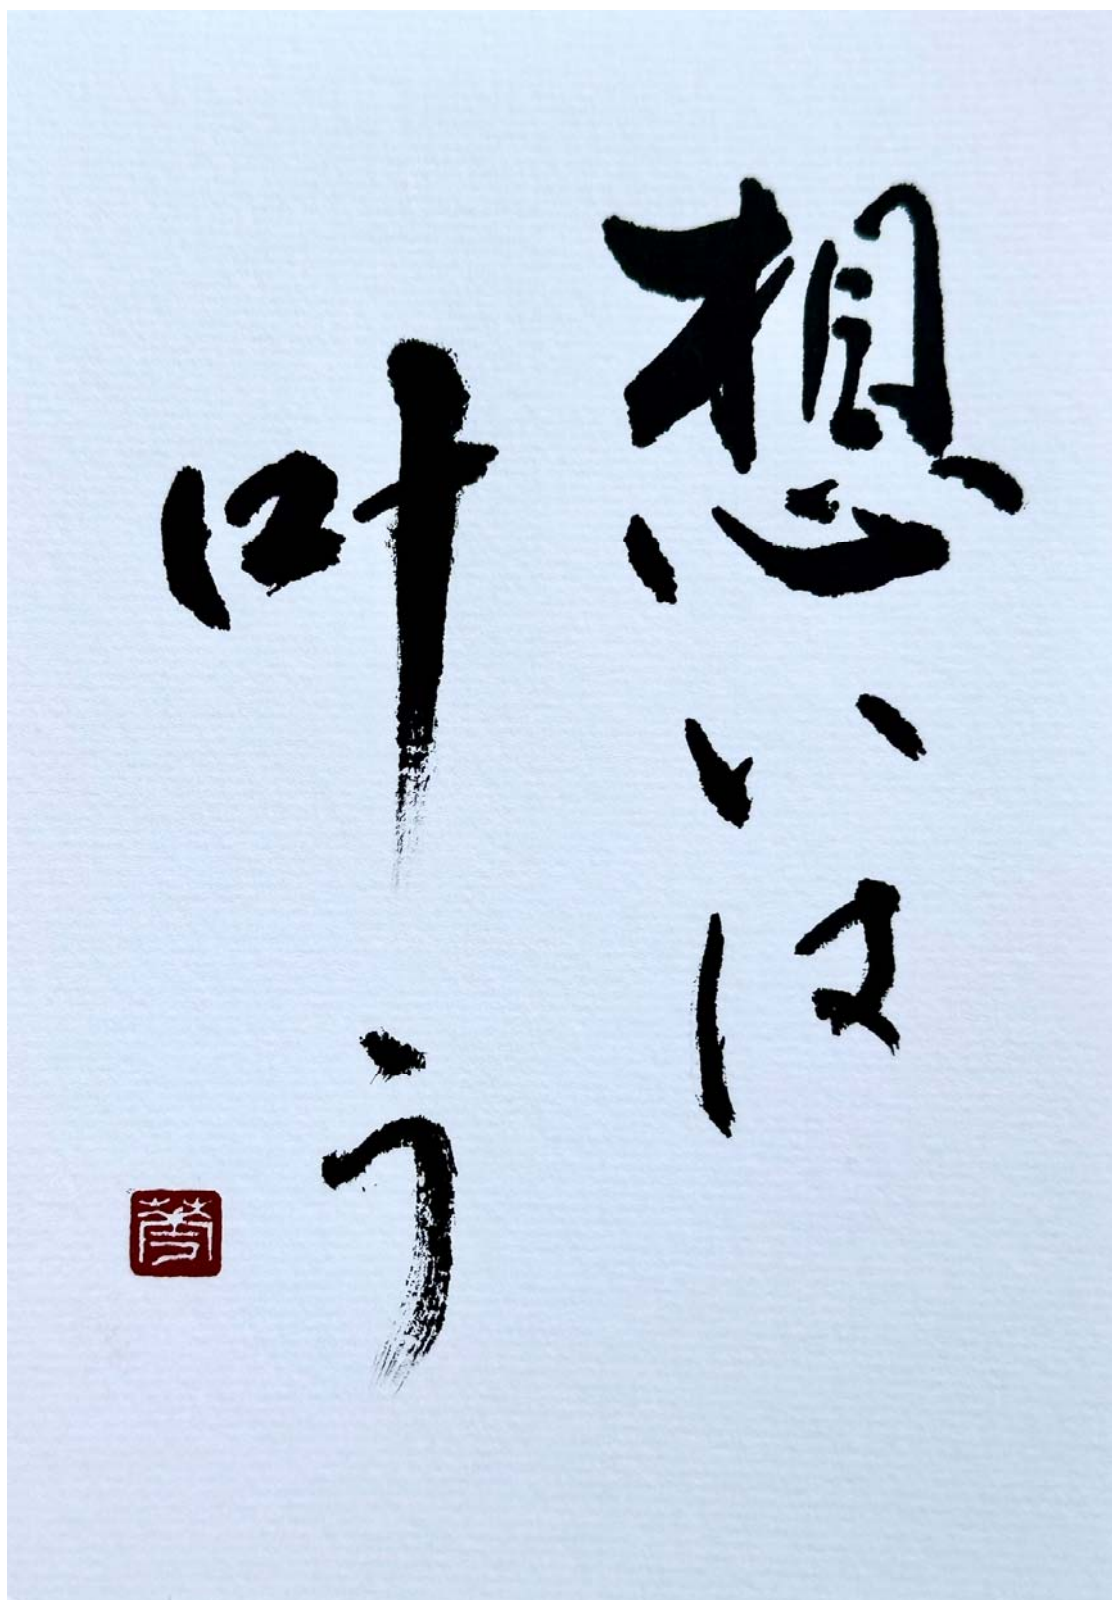 想いは
叶う